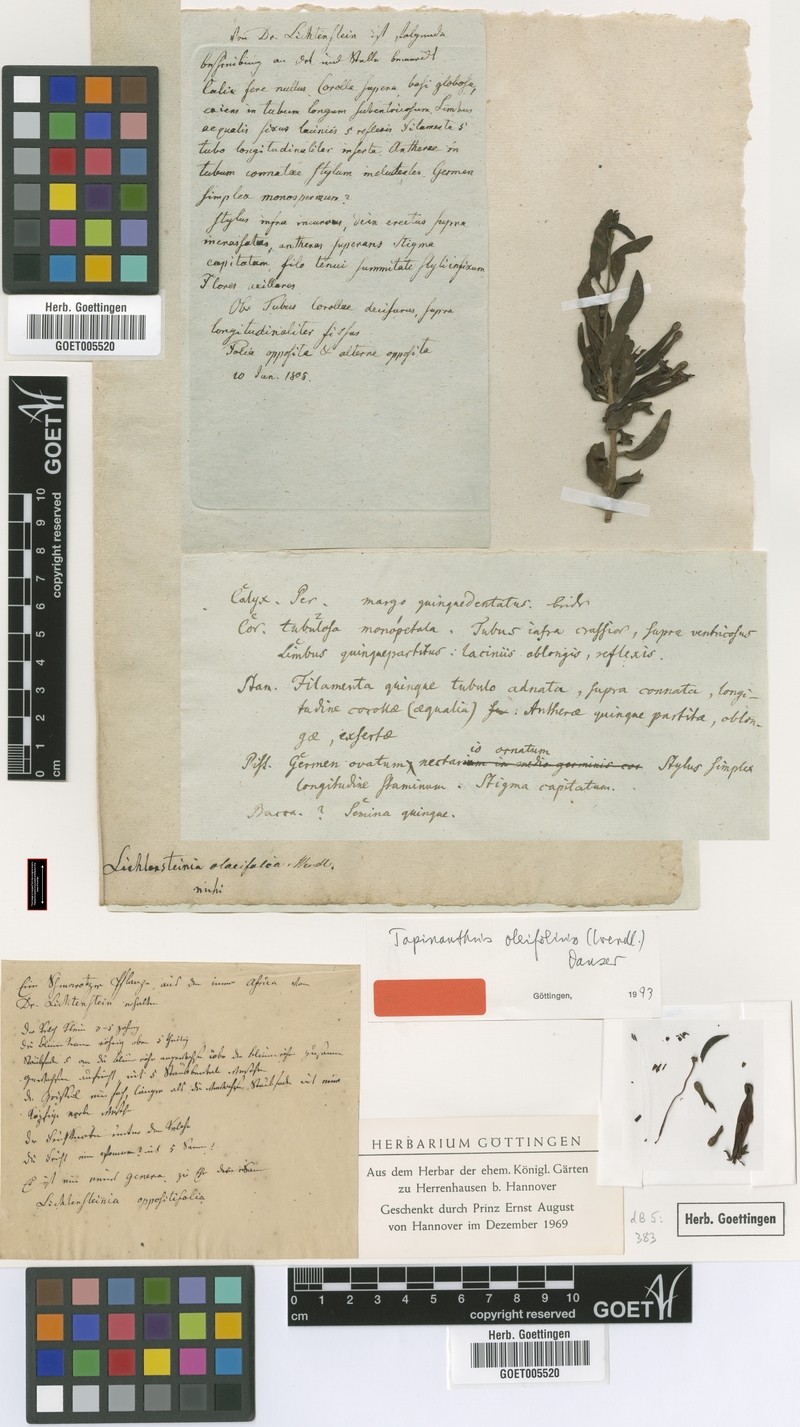 Von Dr. Lichtenstein ist folgende
Beschreibung an Ort und Stelle bemerkt
Calix fere nullus. Corolla supera, basi globosa,
exiens in tubum longum subventricosum, Limbus
aequalis fissus laciniis 5 reflexis Filamenta 5
tubo longitudinaliter inserta. Antherae in
tubum connatae stylum Germen
simplex monospermum?
Stylus infra incurvus, dein erectus supra
incrassatus, antheras superans Stigma
capitatum filo tenui summitati styli infixum
Flores axillares
Obs Tubus Corollae decisurus, supra
longitudinaliter fissus
Folia opposita & alterne opposita
10 Jun. 1805.
Herb. Goettingen
GOET005520
GOET
copyright reserved
0 1 2 3 4 5 6 7 8 9 10
cm
Calyx. Per. margo quinquedentatus.
Cor. tubulosa monopetala. Tubus infra crassior, supra ventricosus
Limbus quinquepartitus: laciniis oblongis, reflexis.
Stam. Filamenta quinque tubulo adnata, supra connata, longi-
tudine corollæ (æqualia) : Antheræ quinque partitæ, oblon-
gæ, exsertæ
io ornatum
Pist. Germen ovatum nectarium in medio germinis cor Stylus simplex
longitudine staminum. Stigma capitatum.
Bacca. ? Semina quinque.
Lichtensteinia oleifolia Wendl.
mihi
Tapinanthus oleifolius (Wendl.)
Danser
Göttingen, 1993
Eine Schmarotzer Pflanze, aus dem innern Africa von
Dr. Lichtenstein erhalten
Der Kelch klein
die Blumenkrone röhrig oben 5 theilig
Staubfäden 5 an die Blumenröhre angewachsen
mit 5 Staubbeutel
länger als die Staubfäden mit einer
Der Fruchtknoten unter dem Kelche
die Frucht eine mit 5 Samen!
Es ist ein neues genera.
Lichtensteinia oppositifolia
HERBARIUM GÖTTINGEN
Aus dem Herbar der ehem. Königl. Gärten
zu Herrenhausen b. Hannover
Geschenkt durch Prinz Ernst August
von Hannover im Dezember 1969
dB 5:
383
Herb. Goettingen
0 1 2 3 4 5 6 7 8 9 10
cm
copyright reserved
GOET
Herb. Goettingen
GOET005520